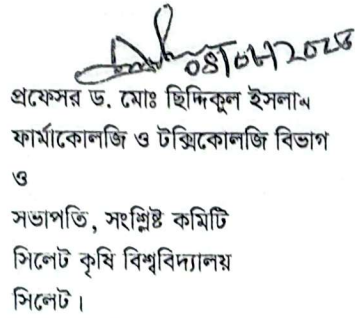 প্রফেসর ড. মোঃ ছিদ্দিকুল ইসলাম
ফার্মাকোলজি ও টক্সিকোলজি বিভাগ
ও
সভাপতি, সংশ্লিষ্ট কমিটি
সিলেট কৃষি বিশ্ববিদ্যালয়
সিলেট।